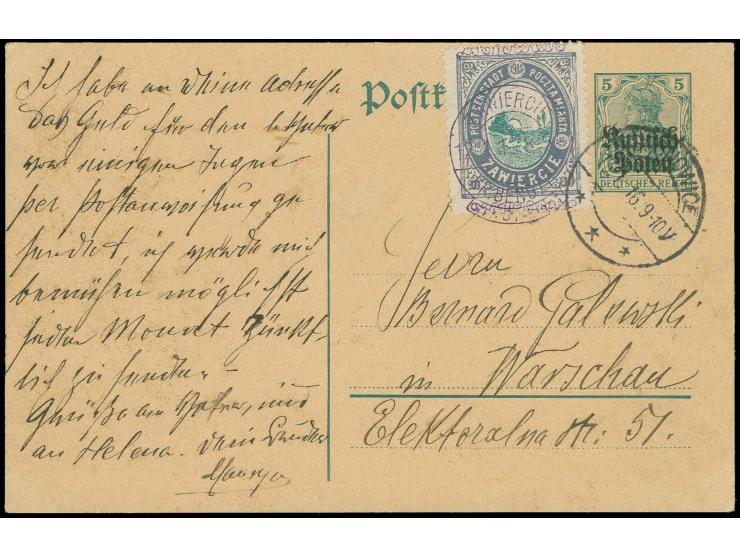 Ich habe an Deine Adresse
das Geld für den
vor einigen Tagen
per Postanweisung ge
sendet, ich werde mich
bemühen möglichst
jeden Monat pünkt-
lich zu senden -
Grüße an und
an Helena. Dein Bruder
Postk
POST FÜR STADT POCZTA MIASTA
ZAWIERCIE
5 5
Russisch-
Polen
DEUTSCHES REICH
16.9-10V
Herrn
Bernard Galewski
in Warschau
Elektoralna str: 51.